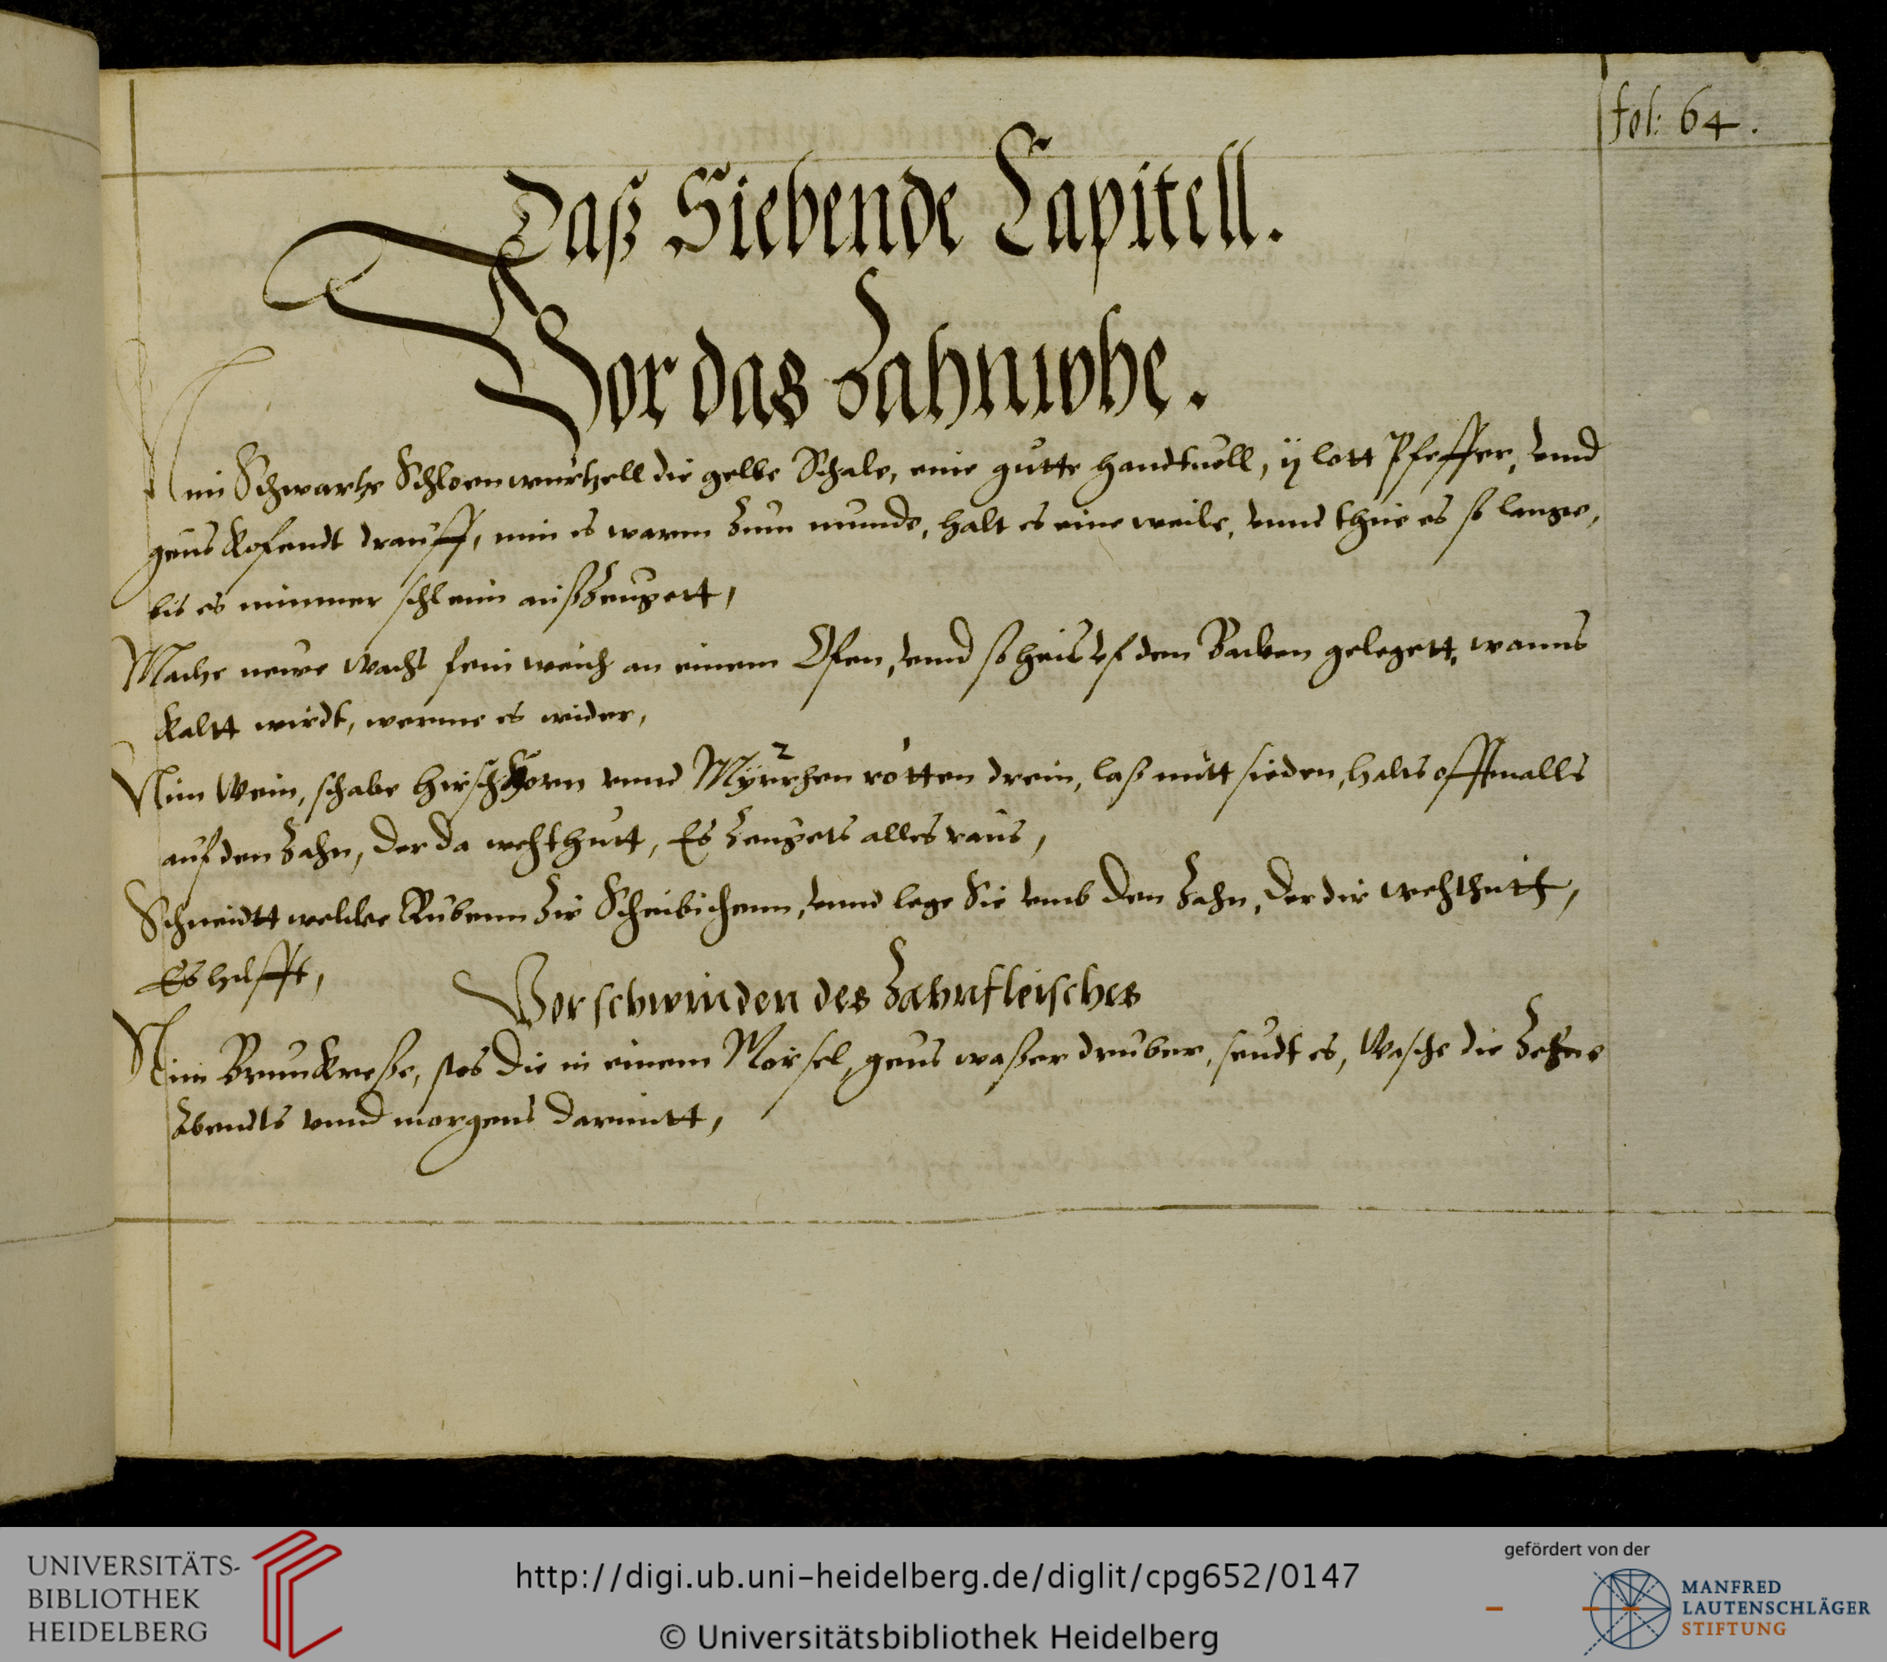 fol: 64.
Daß Siebende Capitell.
Vor das Zahnwhe.
Nim Schwartze Schloenwurtzell die gelbe Schale, eine gutte handtvoll, ij lott Pfeffer, vnnd
geus Kofendt drauff, nim es warm Zum munde, halt es eine weile, vnnd thue es so lange,
bis es nimmer schleim außZeugett,
Mache newe Wachs fein weich an einem Ofen, vnnd so heis vf den Backen gelegett, wanns
Kaltt wirdt, werme es wider,
Nim Wein, schabe Hirschhorn vnnd Myrrhen rötten drein, laß mitt sieden, halts offtmalls
auf den Zahn, der da wehthutt, Es Zeugets alles raus,
Schneidtt welcke Rubenn Zue Scheibichenn, vnnd lege Sie vmb den Zahn, der dir wehthutt,
Es hilfft,
Vor schwinden des Zahnfleisches
Nim BrunKreße, stos die in einem Mörsel, geus waßer druber, seudt es, Wasche die Zehne
Abendts vnnd morgens darmitt,
UNIVERSITÄTS-
BIBLIOTHEK
HEIDELBERG
http://digi.ub.uni-heidelberg.de/diglit/cpg652/0147
© Universitätsbibliothek Heidelberg
gefördert von der
MANFRED
LAUTENSCHLÄGER
STIFTUNG